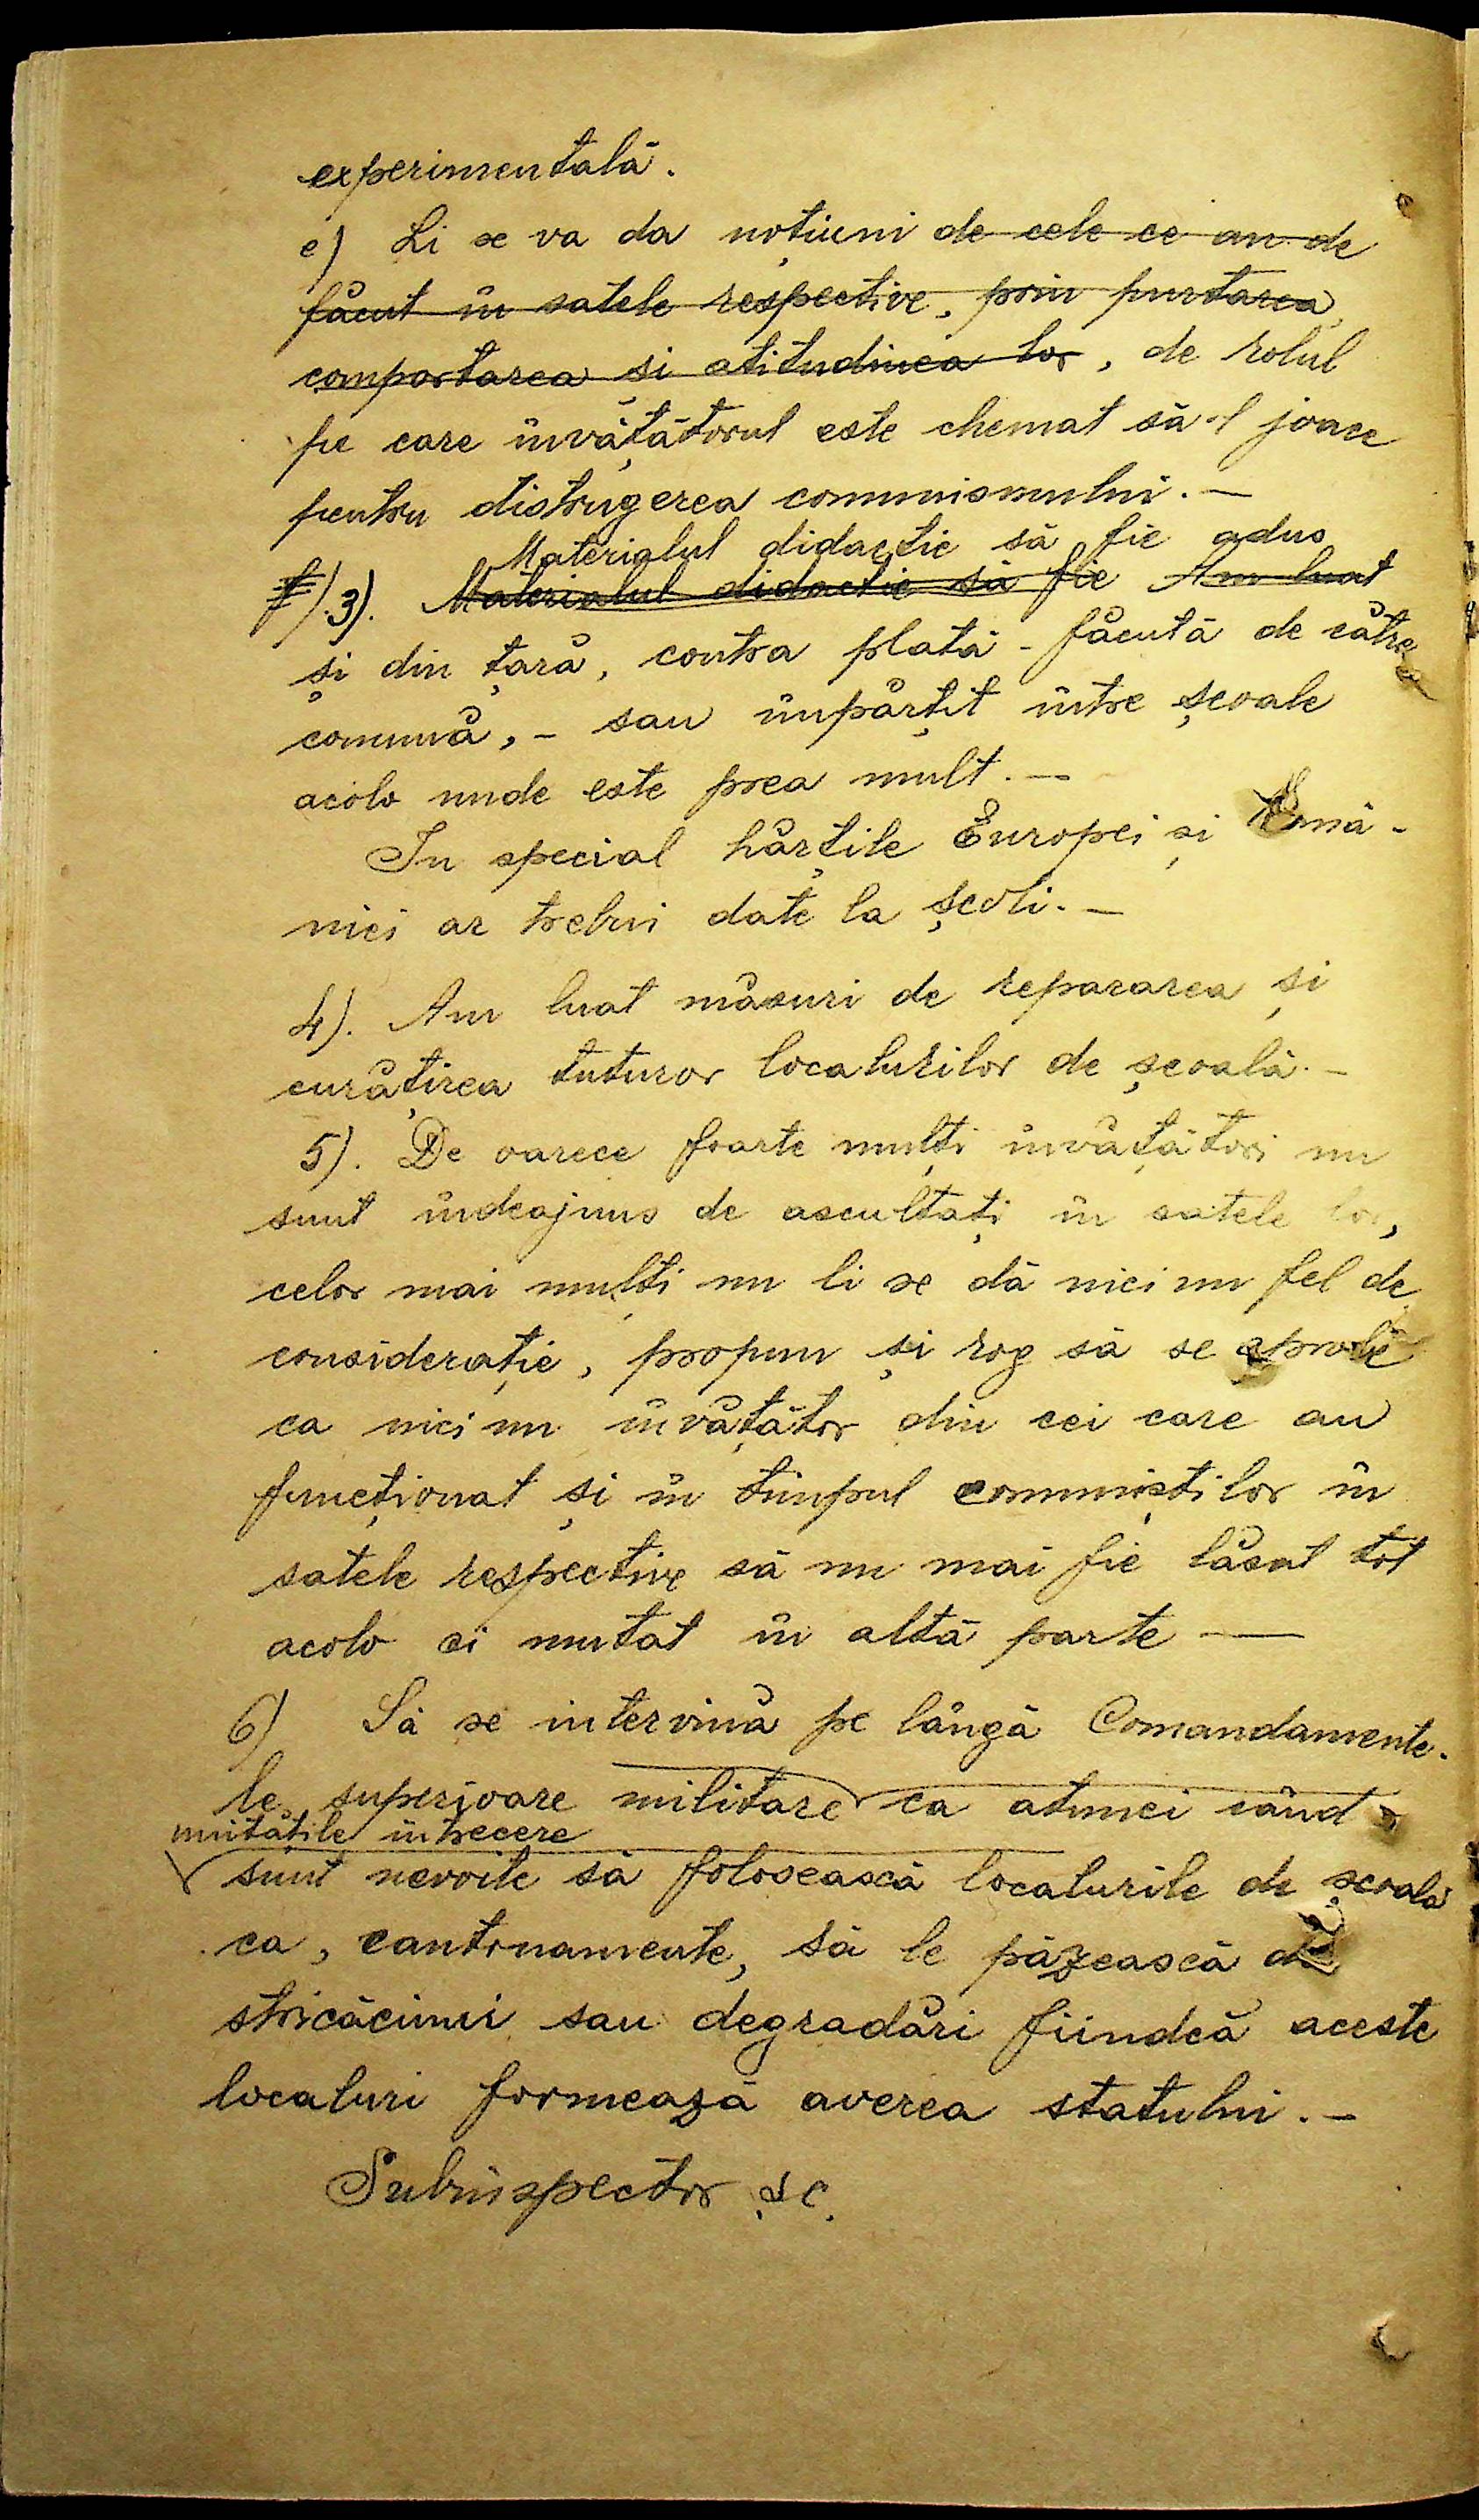 experimentală.
e) Li se va da noțiuni de cele ce au de
făcut în satele respective, prin purtarea,
comportarea și atitudinea lor, de rolul
pe care învățătorul este chemat să-l joace
pentru distrugerea comunismului. —
Materialul didactic să fie adus
f) 3). Materialul didactic să fie Am luat
și din țară, contra plată - făcută de către
comună, - sau împărțit între școale
acolo unde este prea mult. —
In special hărțile Europei și Româ-
niei ar trebui date la școli. —
4). Am luat măsuri de repararea și
curățirea tuturor localurilor de școală. —
5). De oarece foarte mulți învățători nu
sunt îndeajuns de ascultați în satele lor,
celor mai mulți nu li se dă nici un fel de
considerație, propun și rog să se aprobe
ca nici un învățător din cei care au
funcționat și în timpul comuniștilor în
satele respective să nu mai fie lăsat tot
acolo ci mutat în altă parte —
6) Să se intervină pe lângă Comandamente-
le superioare militare ca atunci când
unitățile în trecere
sunt nevoite să folosească localurile de școală
ca, cantonamente, să le păzească de
stricăciuni sau degradări fiindcă aceste
localuri formează averea statului. —
Subinspector șc.